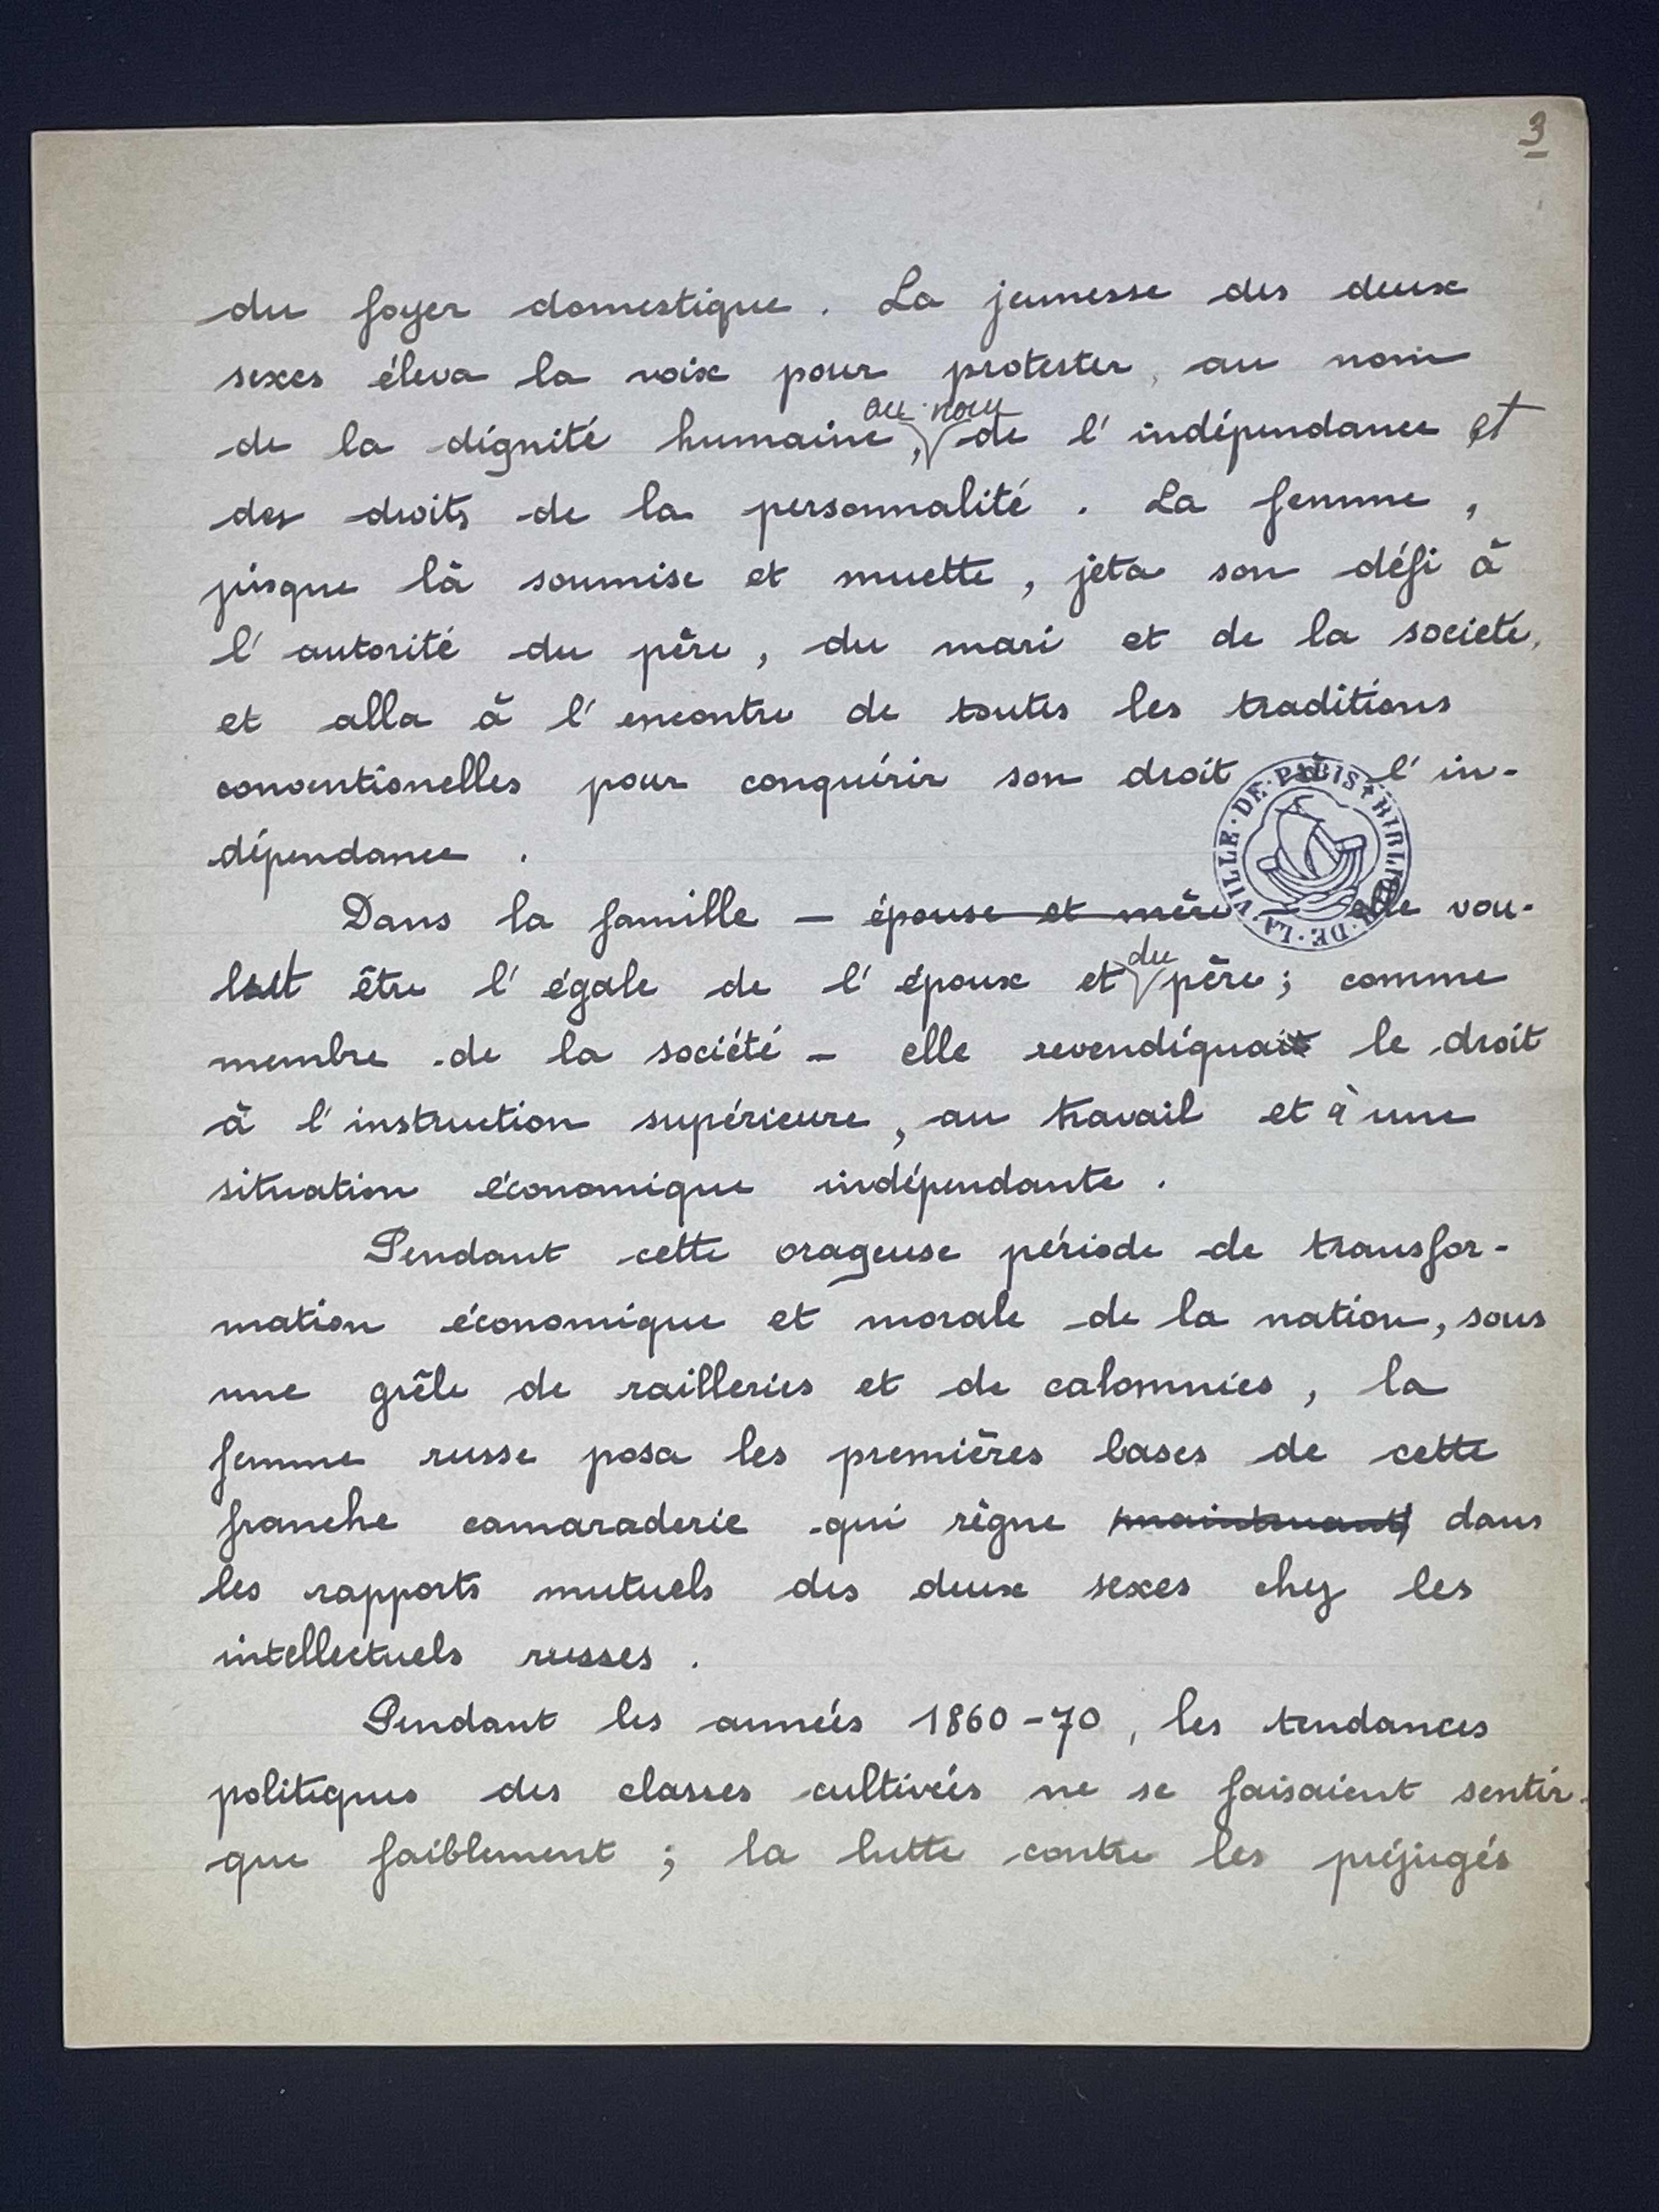 3
du foyer domestique. La jeunesse des deux
sexes éleva la voix pour protester, au nom
de la dignité humaine, au nom de l'indépendance et
des droits de la personnalité. La femme,
jusque là soumise et muette, jeta son défi à
l'autorité du père, du mari et de la société,
et alla à l'encontre de toutes les traditions
conventionelles pour conquérir son droit à l'in-
dépendance.
Dans la famille — épouse et mère — elle vou-
lut être l'égale de l'époux et du père; comme
membre de la société — elle revendiqua le droit
à l'instruction supérieure, au travail et à une
situation économique indépendante.
Pendant cette orageuse période de transfor-
mation économique et morale de la nation, sous
une grêle de railleries et de calomnies, la
femme russe posa les premières bases de cette
franche camaraderie qui règne maintenant dans
les rapports mutuels des deux sexes chez les
intellectuels russes.
Pendant les années 1860-70, les tendances
politiques des classes cultivées ne se faisaient sentir
que faiblement; la lutte contre les préjugés
DE LA VILLE DE PARIS